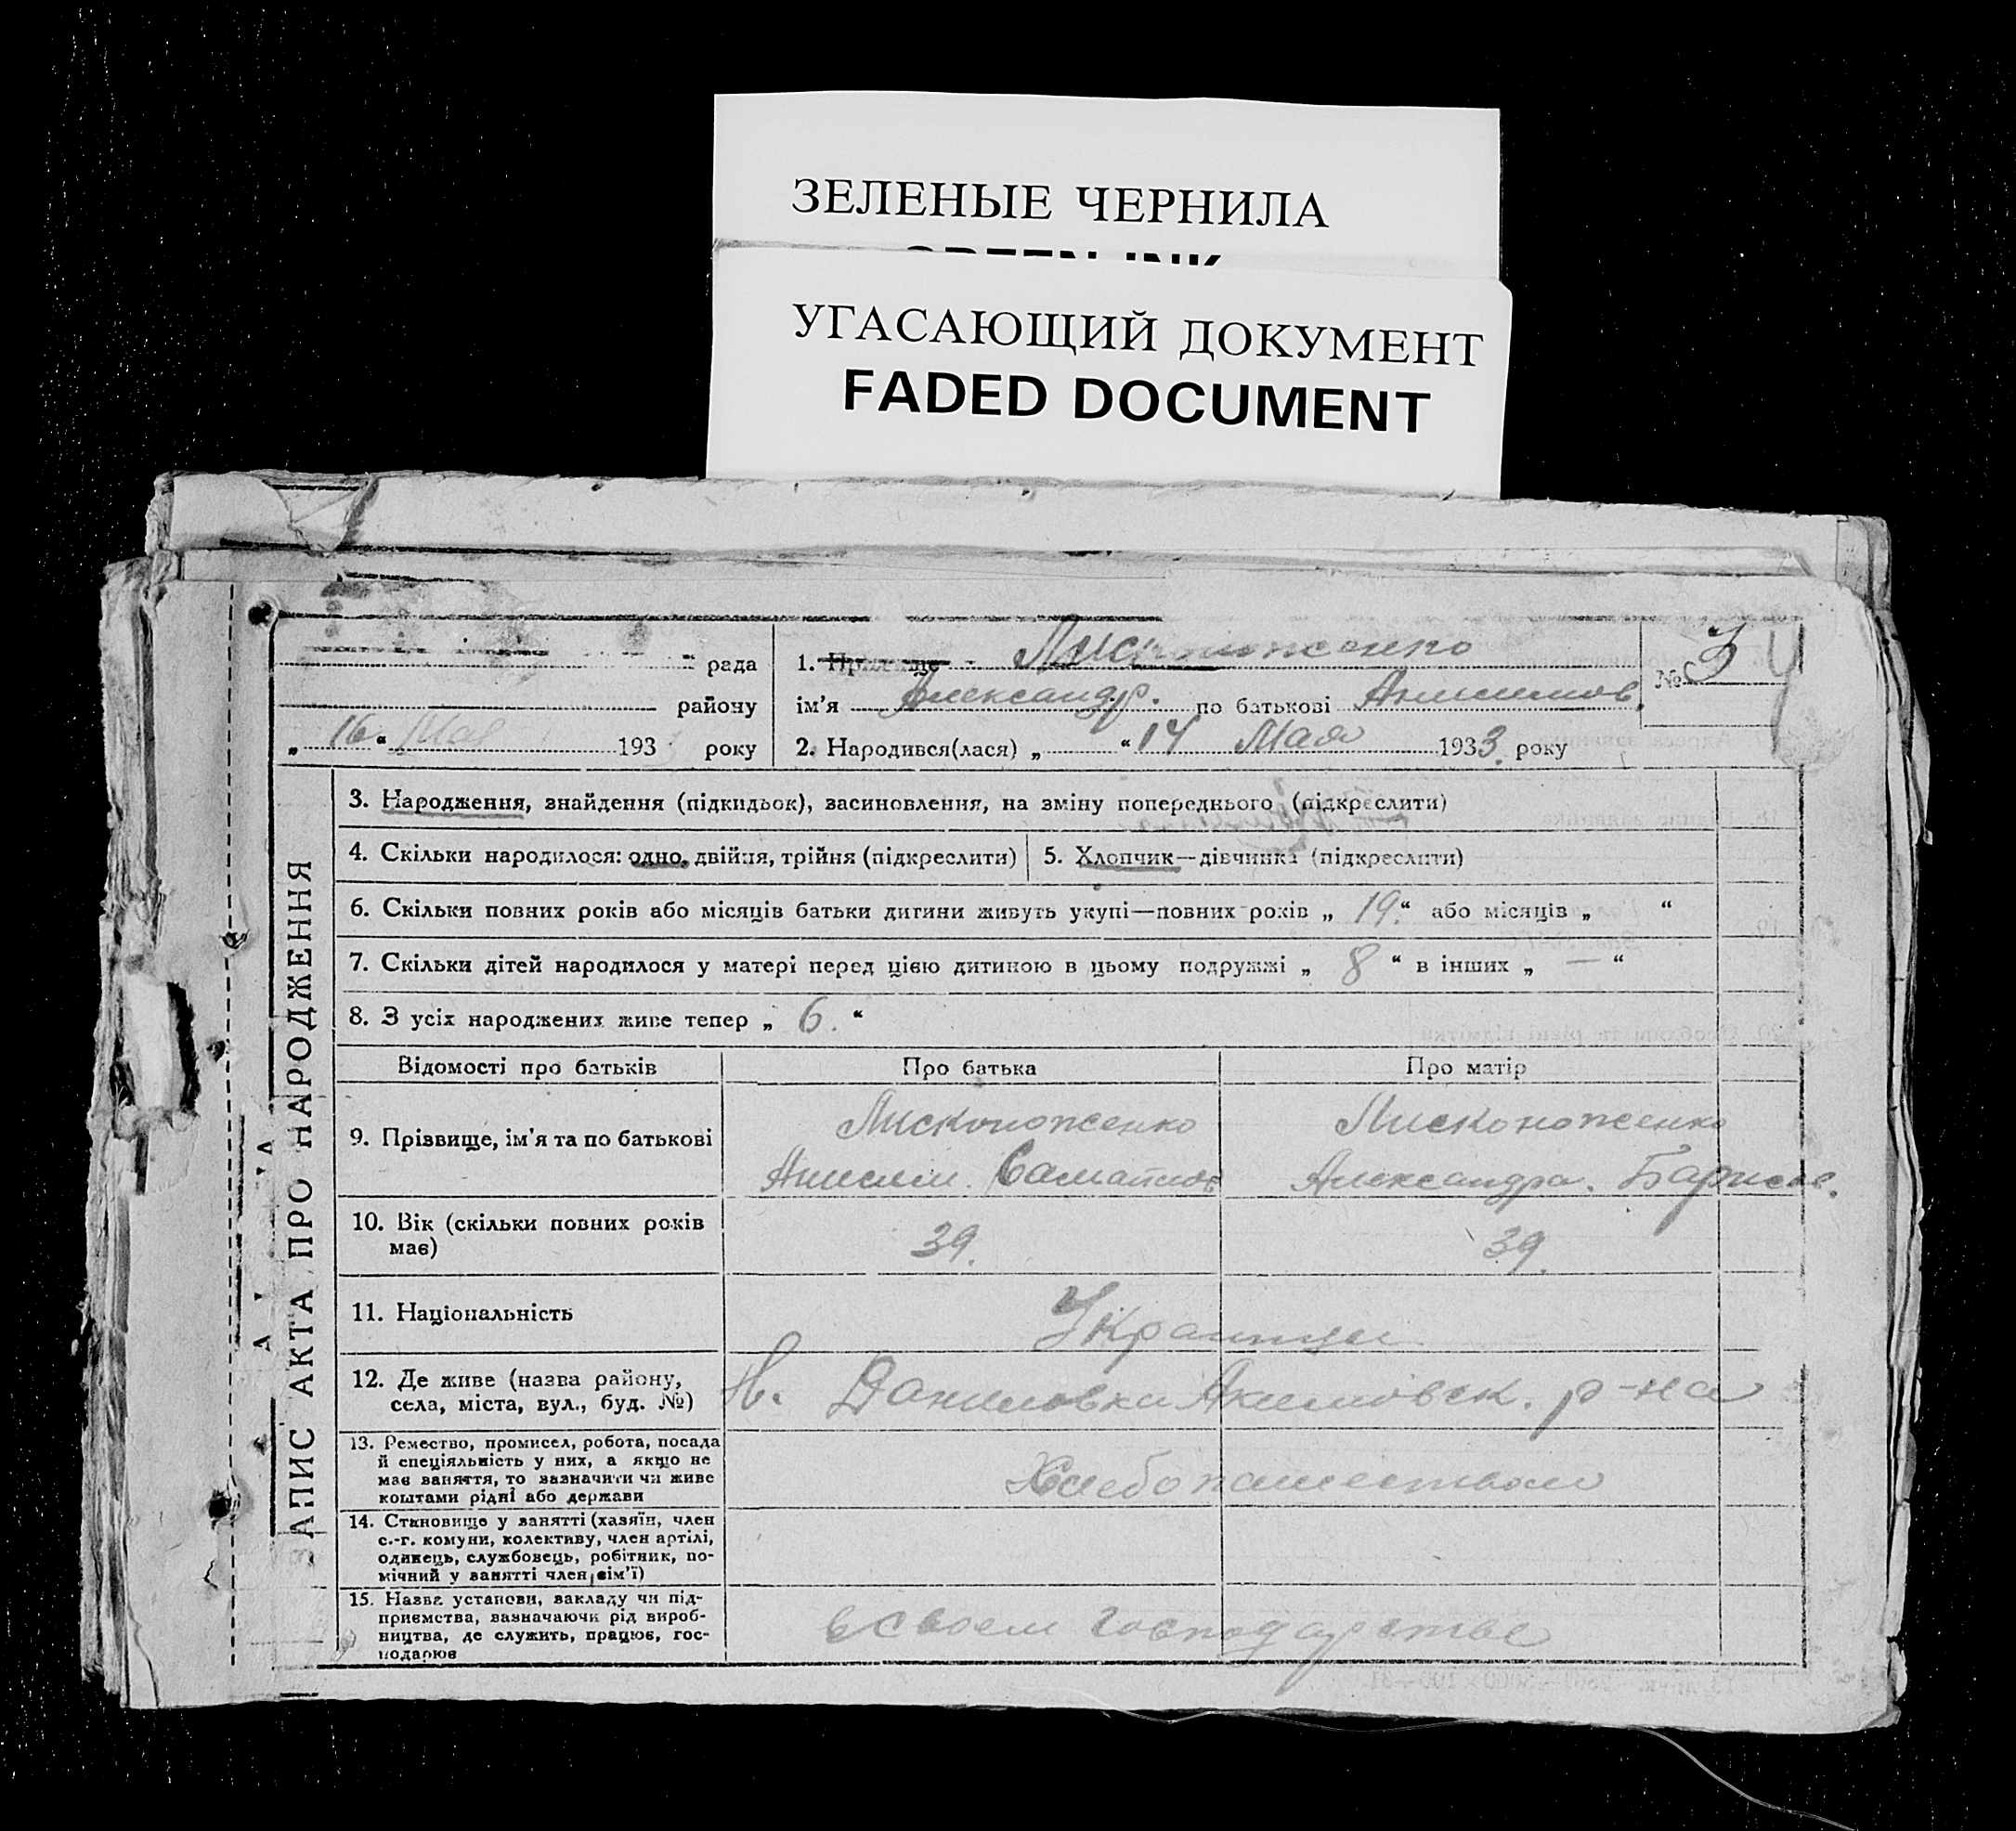 ЗЕЛЕНЫЕ ЧЕРНИЛА
GREEN INK
УГАСАЮЩИЙ ДОКУМЕНТ
FADED DOCUMENT
рада
району
„ 16 “ Мая 193 року
1. Прізвище Лисконоженко
ім'я Александр. по батькові Анисимов.
2. Народився(лася) „ “ 14 Мая 1933. року
№ 34
ЗАПИС АКТА ПРО НАРОДЖЕННЯ
3. Народження, знайдення (підкидьок), засиновлення, на зміну попереднього (підкреслити)
4. Скільки народилося: одно, двійня, трійня (підкреслити)
5. Хлопчик—дівчинка (підкреслити)
6. Скільки повних років або місяців батьки дитини живуть укупі—повних років „ 19. “ або місяців „ “
7. Скільки дітей народилося у матері перед цією дитиною в цьому подружжі „ 8 “ в інших „ — “
8. З усіх народжених живе тепер „ 6. “
Відомості про батьків
Про батька
Про матір
9. Прізвище, ім'я та по батькові
Лисконоженко
Анисим.
Лисконоженко
Александра. Барисов.
10. Вік (скільки повних років
має)
39.
39.
11. Національність
Украинцы
12. Де живе (назва району,
села, міста, вул., буд. №)
Н. Даниловка Акимовск. р-на
13. Ремество, промисел, робота, посада
й спеціяльність у них, а якщо не
має заняття, то зазначити чи живе
коштами рідні або держави
Хлебопашеством
14. Становище у занятті (хазяїн, член
с.-г. комуни, колективу, член артілі,
одинець, службовець, робітник, по-
мічний у занятті член сім'ї)
15. Назва установи, закладу чи під-
приємства, зазначаючи рід вироб-
ництва, де служить, працює, гос-
подарює
в своем господарстве